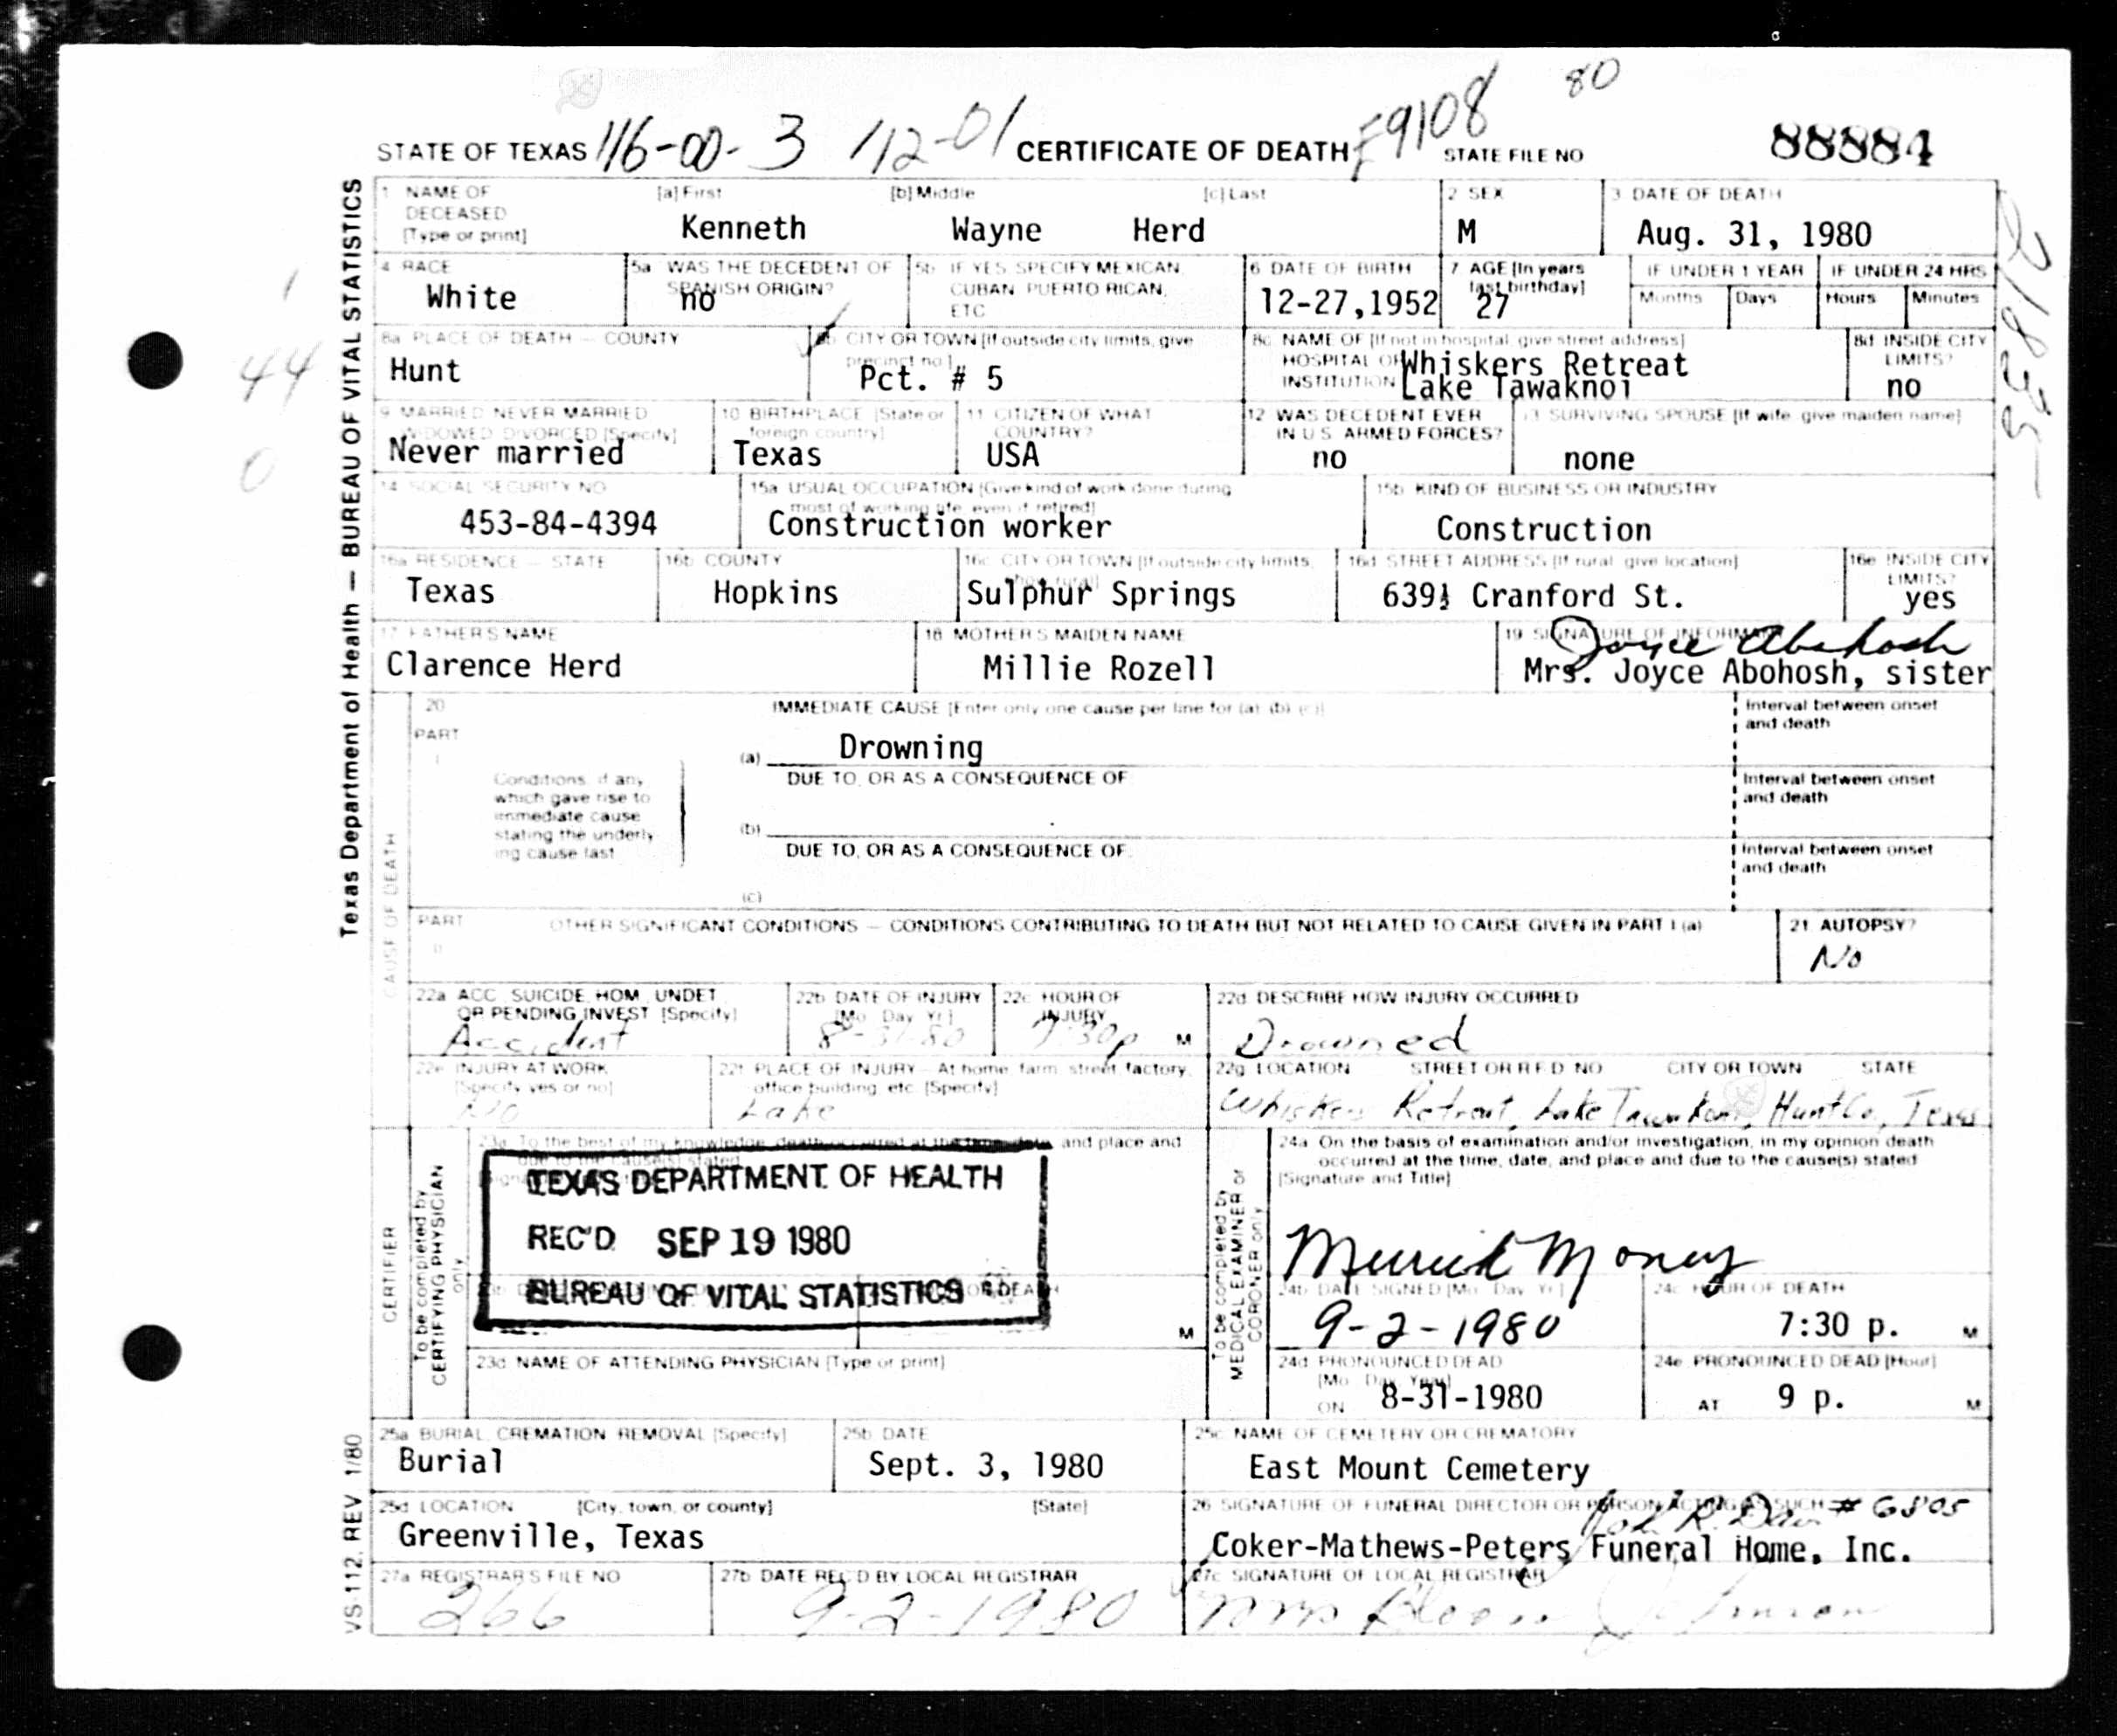 80
STATE OF TEXAS 116-00-3 112-01 CERTIFICATE OF DEATH F9108 STATE FILE NO 88884
Texas Department of Health — BUREAU OF VITAL STATISTICS
1 NAME OF DECEASED [Type or print] [a] First [b] Middle [c] Last 2 SEX 3 DATE OF DEATH
Kenneth Wayne Herd M Aug. 31, 1980
4 RACE 5a WAS THE DECEDENT OF SPANISH ORIGIN? 5b IF YES, SPECIFY MEXICAN, CUBAN, PUERTO RICAN, ETC 6 DATE OF BIRTH 7 AGE [In years last birthday] IF UNDER 1 YEAR IF UNDER 24 HRS
Months Days Hours Minutes
White no 12-27,1952 27
8a PLACE OF DEATH — COUNTY 8b CITY OR TOWN [If outside city limits, give precinct no.] 8c NAME OF [If not in hospital, give street address] HOSPITAL OR INSTITUTION 8d INSIDE CITY LIMITS?
Hunt Pct. # 5 Whiskers Retreat
Lake Tawaknoi no
44
0
9 MARRIED, NEVER MARRIED, WIDOWED, DIVORCED [Specify] 10 BIRTHPLACE [State or foreign country] 11 CITIZEN OF WHAT COUNTRY? 12 WAS DECEDENT EVER IN U.S. ARMED FORCES? 13 SURVIVING SPOUSE [If wife, give maiden name]
Never married Texas USA no none
14 SOCIAL SECURITY NO 15a USUAL OCCUPATION [Give kind of work done during most of working life, even if retired] 15b KIND OF BUSINESS OR INDUSTRY
453-84-4394 Construction worker Construction
16a RESIDENCE — STATE 16b COUNTY 16c CITY OR TOWN [If outside city limits, show rural] 16d STREET ADDRESS [If rural, give location] 16e INSIDE CITY LIMITS?
Texas Hopkins Sulphur Springs 639½ Cranford St. yes
17 FATHER'S NAME 18 MOTHER'S MAIDEN NAME 19 SIGNATURE OF INFORMANT
Joyce Abohosh
Clarence Herd Millie Rozell Mrs. Joyce Abohosh, sister
CAUSE OF DEATH
20 PART I IMMEDIATE CAUSE [Enter only one cause per line for (a), (b), (c)] Interval between onset and death
(a) Drowning
Conditions, if any, which gave rise to immediate cause stating the underlying cause last
DUE TO, OR AS A CONSEQUENCE OF Interval between onset and death
(b)
DUE TO, OR AS A CONSEQUENCE OF Interval between onset and death
(c)
PART II OTHER SIGNIFICANT CONDITIONS — CONDITIONS CONTRIBUTING TO DEATH BUT NOT RELATED TO CAUSE GIVEN IN PART I (a) 21 AUTOPSY?
No
22a ACC, SUICIDE, HOM, UNDET, OR PENDING INVEST [Specify] 22b DATE OF INJURY [Mo, Day, Yr] 22c HOUR OF INJURY 22d DESCRIBE HOW INJURY OCCURRED
Accident 8-31-80 7:30p M Drowned
22e INJURY AT WORK [Specify yes or no] 22f PLACE OF INJURY — At home, farm, street, factory, office building, etc [Specify] 22g LOCATION STREET OR R.F.D. NO CITY OR TOWN STATE
No Lake Whiskers Retreat, Lake Tawakoni, Hunt Co, Texas
CERTIFIER
To be completed by CERTIFYING PHYSICIAN only
23a To the best of my knowledge, death occurred at the time, date, and place and due to the cause(s) stated
TEXAS DEPARTMENT OF HEALTH
REC'D SEP 19 1980
BUREAU OF VITAL STATISTICS
M
23d NAME OF ATTENDING PHYSICIAN [Type or print]
To be completed by MEDICAL EXAMINER or CORONER only
24a On the basis of examination and/or investigation, in my opinion death occurred at the time, date, and place and due to the cause(s) stated
[Signature and Title]
Merrick Money
24b DATE SIGNED [Mo, Day, Yr] 24c HOUR OF DEATH
9-2-1980 7:30 p. M
24d PRONOUNCED DEAD [Mo, Day, Year] 24e PRONOUNCED DEAD [Hour]
ON 8-31-1980 AT 9 p. M
25a BURIAL, CREMATION, REMOVAL [Specify] 25b DATE 25c NAME OF CEMETERY OR CREMATORY
Burial Sept. 3, 1980 East Mount Cemetery
25d LOCATION [City, town, or county] [State] 26 SIGNATURE OF FUNERAL DIRECTOR OR PERSON ACTING AS SUCH # 6805
Greenville, Texas Coker-Mathews-Peters Funeral Home, Inc.
27a REGISTRAR'S FILE NO 27b DATE REC'D BY LOCAL REGISTRAR 27c SIGNATURE OF LOCAL REGISTRAR
266 9-2-1980 Mrs Johnson
VS-112, REV. 1/80